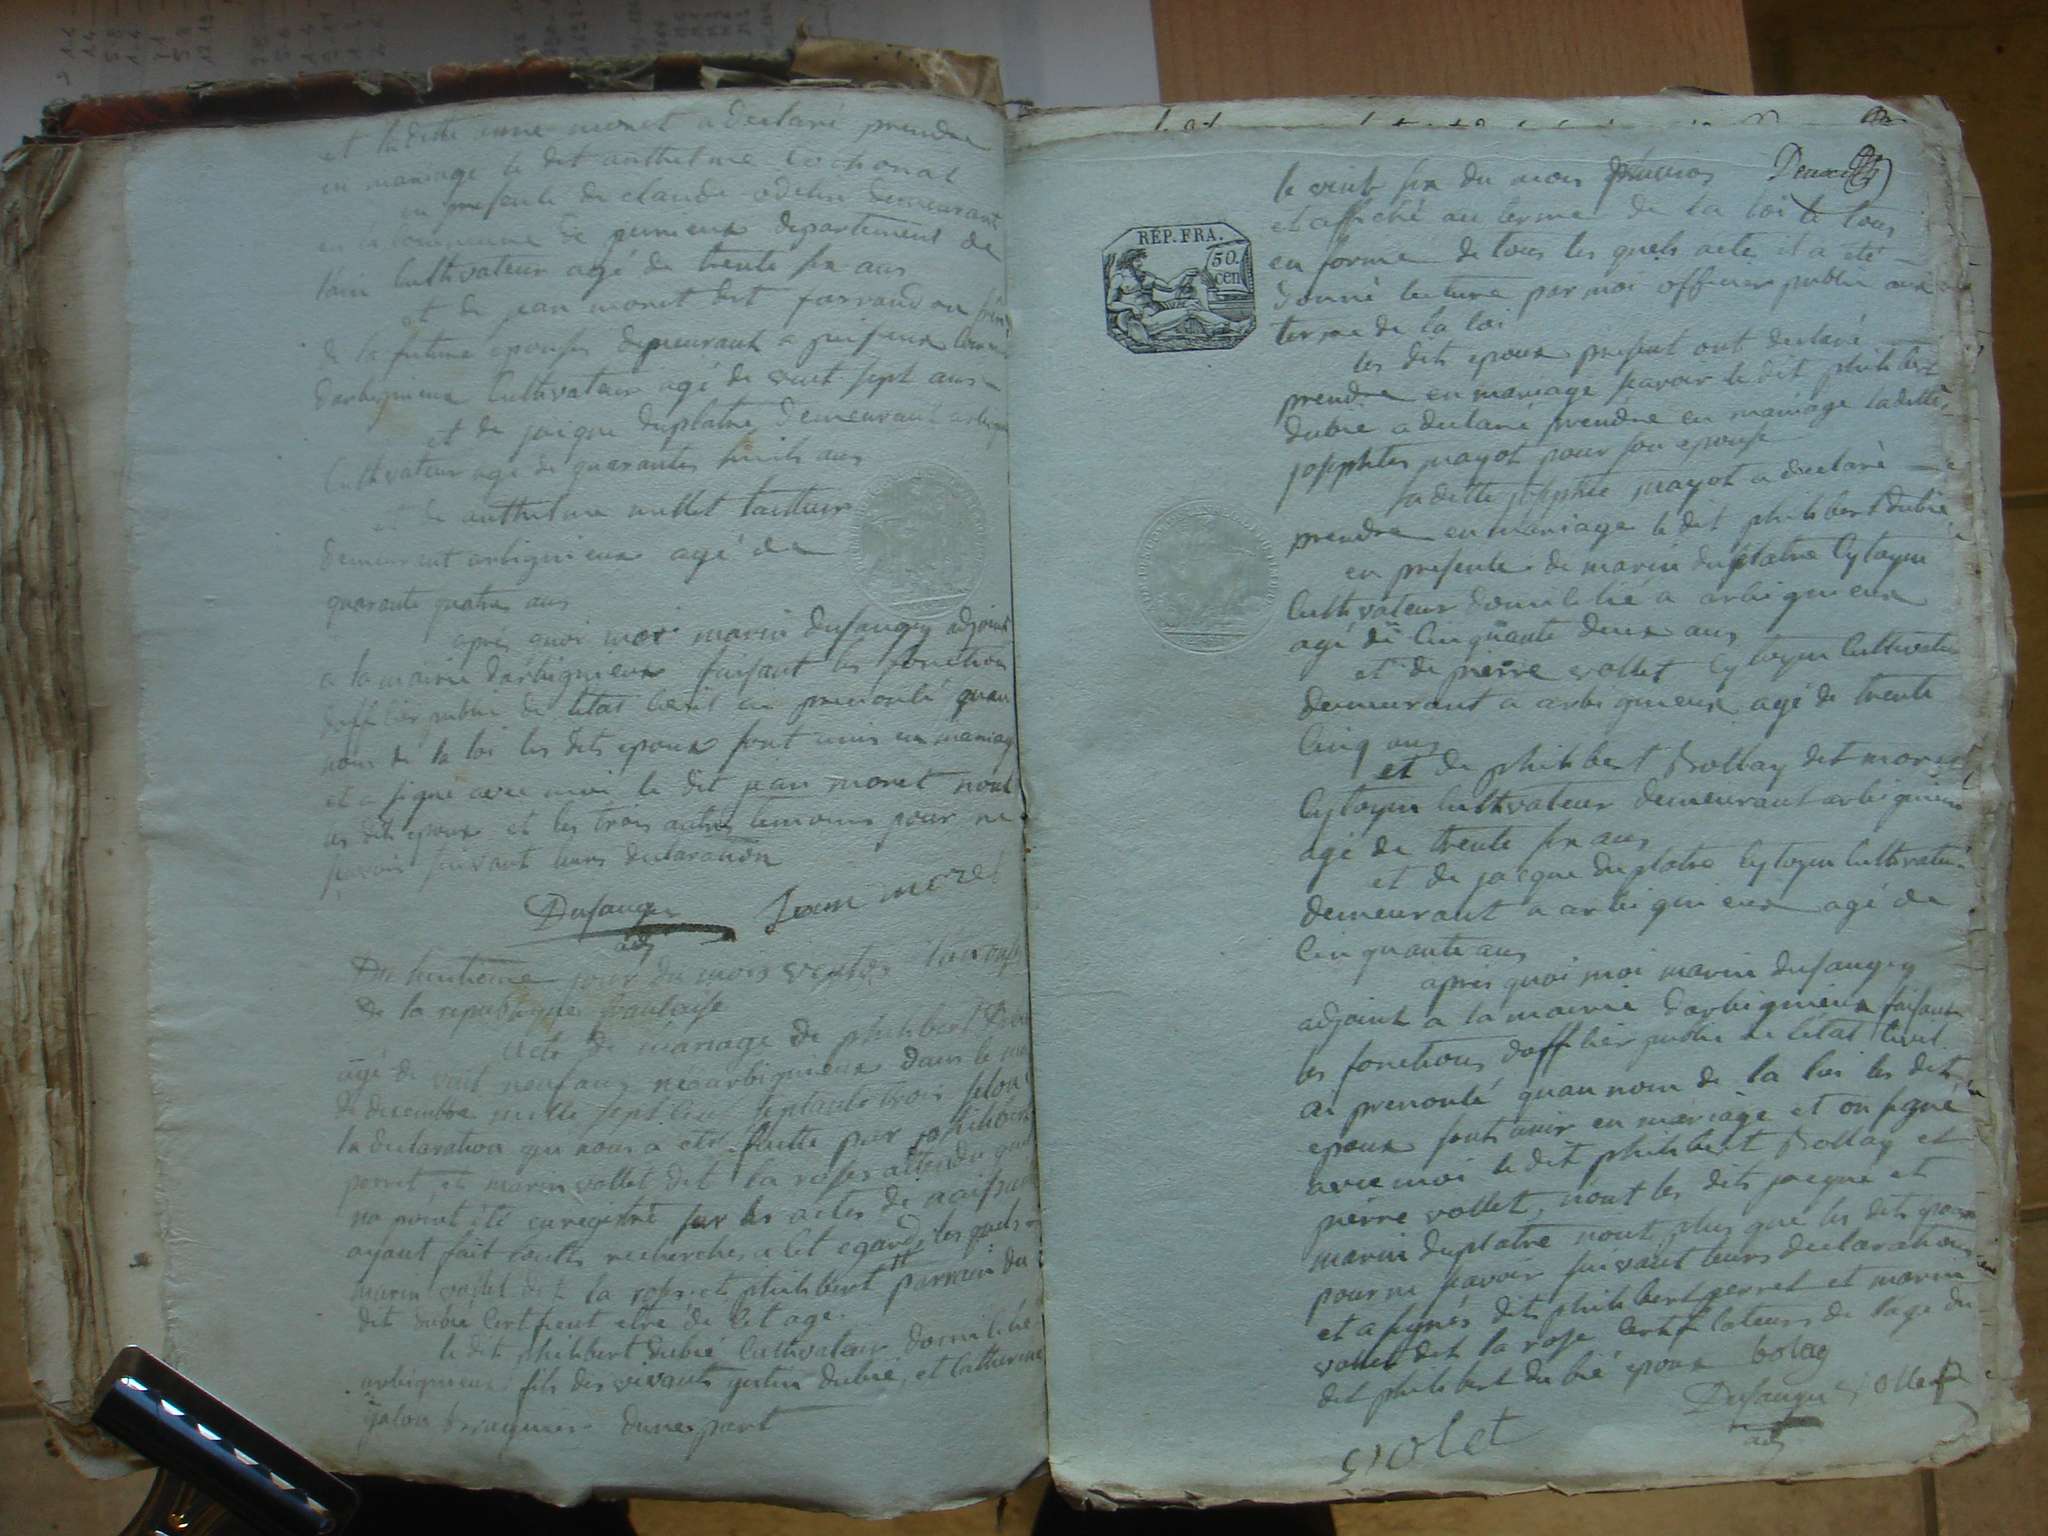 et ladite anne moret a declaré prendre
en mariage le dit anthelme Cochonat
en presente de claude odelin demeurant
en la Commune de peirieux departement de
lain Cultivateur agé de trente six ans
et de jean moret dit farrand ou frere
de la future epouse, demeurant a
darbignieux Cultivateur agé de vint sept ans
et de jacque duplatre, demeurant
Cultivateur agé de quarante huit ans
et de anthelme mellet
demeurant arbignieux agé de
quarante quatre ans
apres quoi moi marin dusaugey adjoint
a la mairie darbignieux faisant les fonctions
dofficier public de letat Civil ai prenonté quau
nom de la loi les dits epoux sont unis en mariage
et a signé avec moi le dit jean moret nont
les dits epoux et les trois autres temoins pour ne
savoir suivant leurs declaration
Dusaugey Jean moret
adj
Du huitieme jour du mois ventos
de la republique francaise
acte de mariage de philibert
agé de vint neuf ans né arbignieux dans le
de decembre mille sept Cen septante trois selon
la declaration qui nous a eté faitte par philibert
perret, et marin vollet dit la rose attendu
na point été enregistré sur les actes de naissance
ayant fait toutte recherche a Cet egard, les quels
marin vollet dit la rose et philibert parrain du
dit dubié Certifient etre de Cet age.
le dit philibert dubie Cultivateur domicilié
arbignieux fils des vivants dubié, et Catherine
dune part
REP. FRA.
50.
cen
le vint six du mois pluvios
et affiché au terme de la loi le tous
en forme de tous les quels acte il a eté
donné lecture par moi officier public aux
terme de la loi
les dits epoux present ont declaré
prendre en mariage savoir le dit philibert
dubie a declaré prendre en mariage ladite
josephte mayot pour son epouse
ladite josephte mayot a declaré
prendre en mariage le dit philibert dubié
en presente de marin duplatre Cytoyen
Cultivateur domicilié a arbignieux
agé de Cinquante deux ans
et de pierre vollet Cytoyen Cultivateur
demeurant a arbignieux agé de trente
Cinq ans
et de philibert Bollay dit moret
Cytoyen Cultivateur demeurant arbignieux
agé de trente six ans
et de jacque duplatre Cytoyen Cultivateur
demeurant a arbignieux agé de
Cinquante ans
apres quoi moi marin dusaugey
adjoint a la mairie darbignieux faisant
les fonctions dofficier public de letat Civil
ai prenonté quau nom de la loi les dits
epoux sont unis en mariage et on signé
avec moi le dit philibert Bollay et
pierre vollet, nont les dits jacque et
marin duplatre nont plus que les dits epoux
pour ne savoir suivant leurs declaration
et a signés dits philibert perret et marin
vollet dit la rose Certificateurs de lage du
dit philibert dubié epoux bolay
Dusaugey vollet
adj
violet